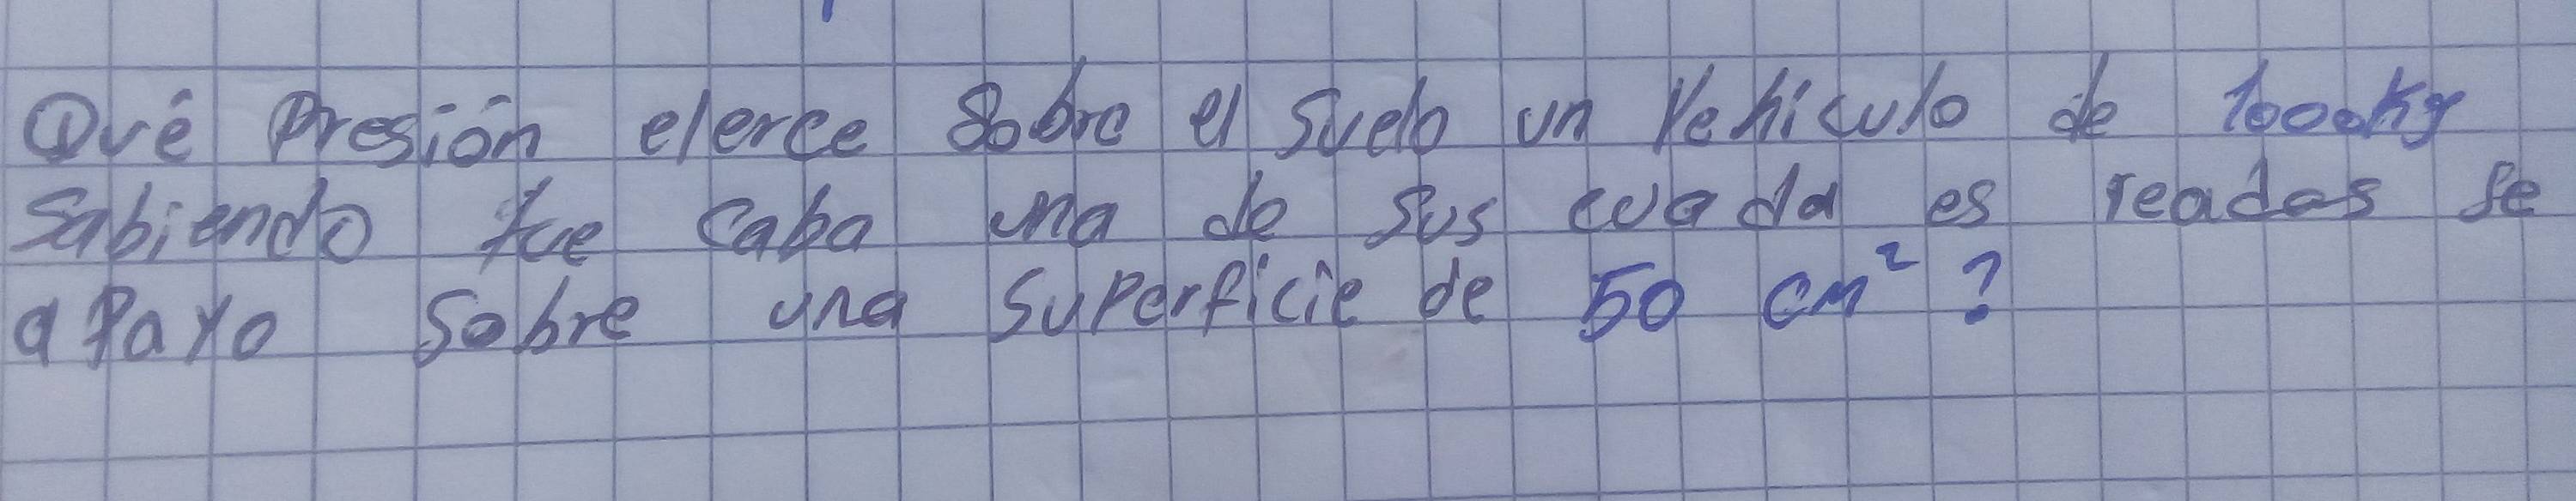 Qué Presión elerce Sobre el Suelo un Vehiculo de 1000kg
Sabiendo que caba una de sus cuadd es readas se
a Payo Sobre una Superficie de 50 cm²?